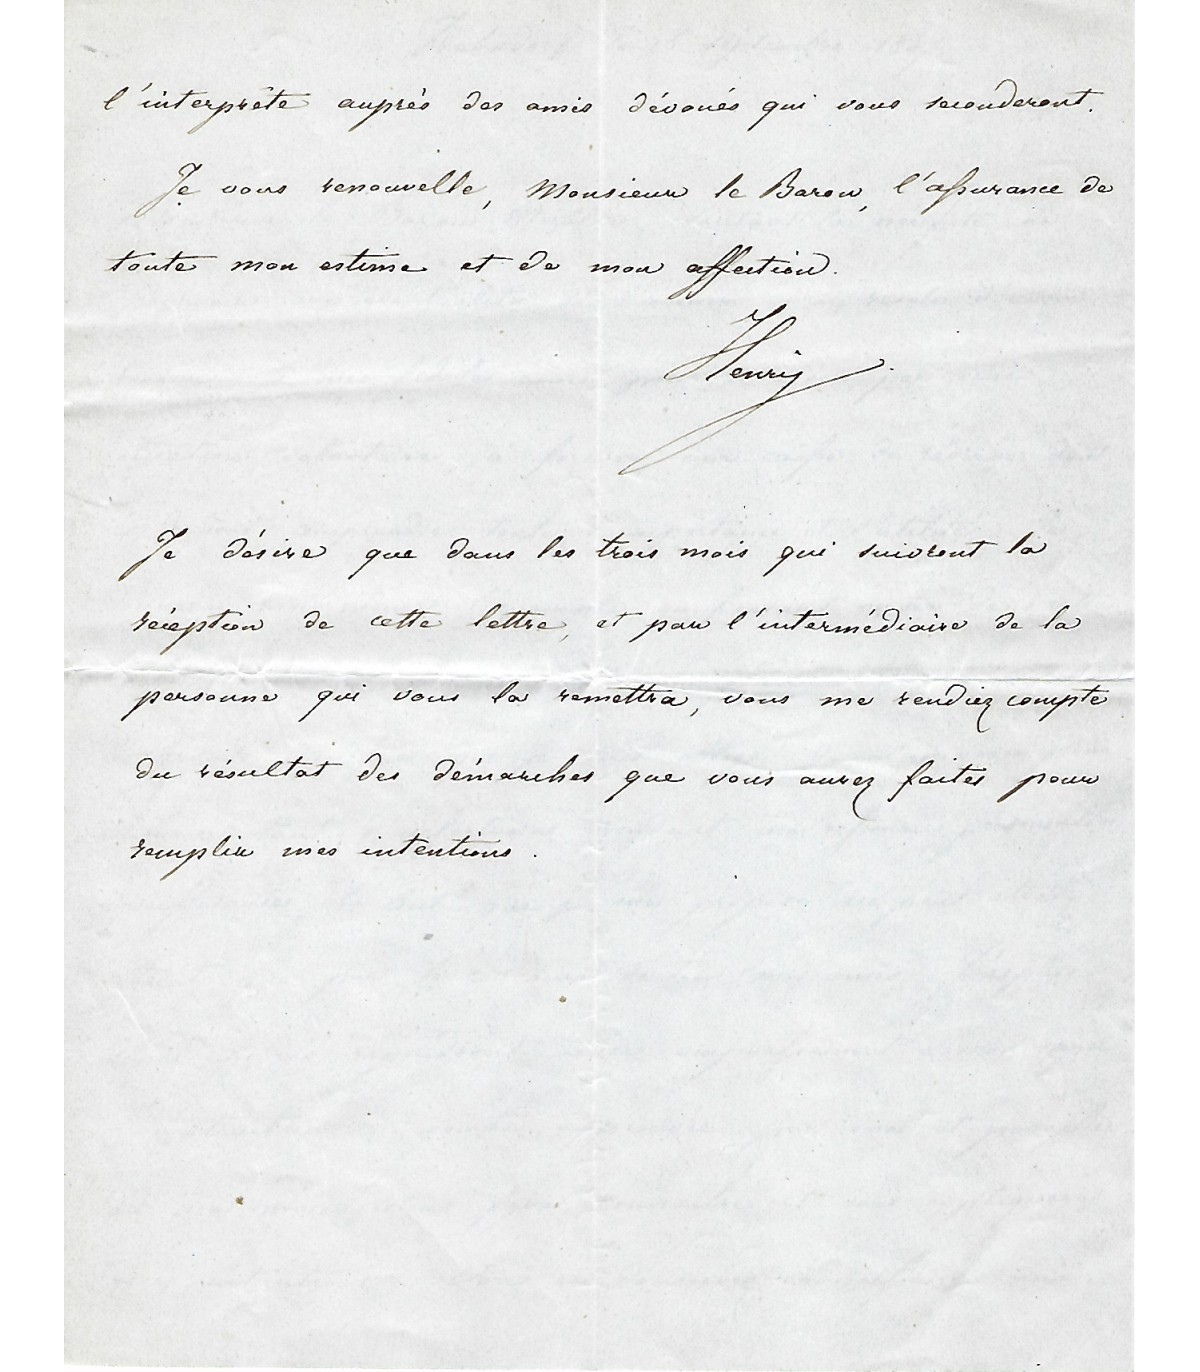 l'interprête auprès des amis dévoués qui vous seconderont.
Je vous renouvelle, Monsieur le Baron, l'assurance de
toute mon estime et de mon affection.
Henry
Je désire que dans les trois mois qui suivront la
réception de cette lettre, et par l'intermédiaire de la
personne qui vous la remettra, vous me rendiez compte
du résultat des démarches que vous aurez faites pour
remplir mes intentions.